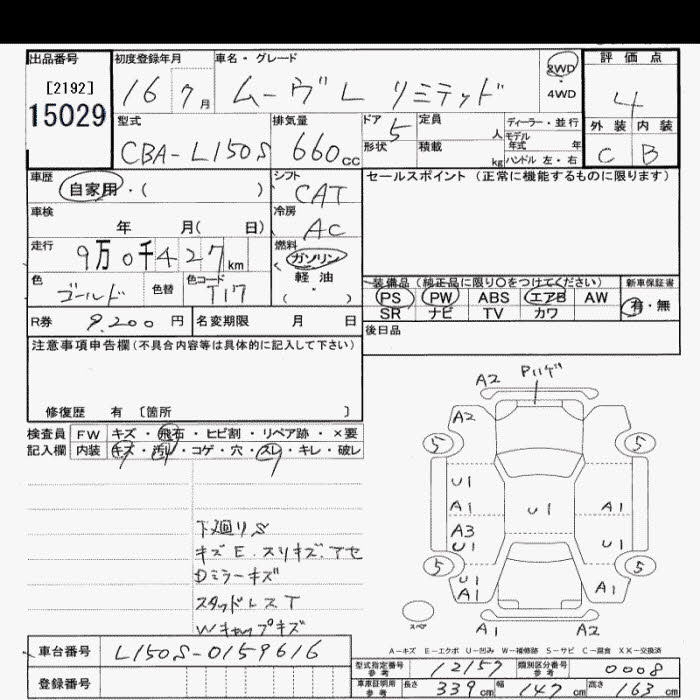 出品番号 初度登録年月 車名・グレード 2WD・4WD 評価点
[2192]
15029
16 7月 ムーヴL リミテッド 4
外装 内装
C B
型式 排気量 ドア 5 定員 人 ディーラー・並行
モデル年式 年
CBA-L150S 660cc 形状 積載 kg ハンドル 左・右
車歴 自家用・( ) シフト CAT セールスポイント (正常に機能するものに限ります)
車検 年 月( 日) 冷房 AC
走行 9万0千427km 燃料 ガソリン 軽油・( )
色 ゴールド 色替 色コード T17
装備品(純正品に限り〇をつけてください) 新車保証書
PS PW ABS エアB AW 有・無
SR ナビ TV カワ
R券 9,200円 名変期限 月 日
後日品
注意事項申告欄(不具合内容等は具体的に記入して下さい)
修復歴 有 [箇所 ]
検査員記入欄 FW キズ・飛石・ヒビ割・リペア跡・×要
内装 キズ・汚れ・コゲ・穴・スレ・キレ・破レ
下廻りS
キズE.スリキズ.アセ
Dミラーキズ
スタッドレスT
Wキャップキズ
A2
A2
5 5
U1
A1 U1 A1
A3
U1 U1
5 5
U1
A1 A1
スペア
A1 A2
A-キズ E-エクボ U-凹み W-補修跡 S-サビ C-腐食 XX-交換済
車台番号 L150S-0159616
登録番号
型式指定番号 参考 12157 類別区分番号 参考 0008
車庫証明用 参考 長さ 339cm 幅 147cm 高さ 163cm